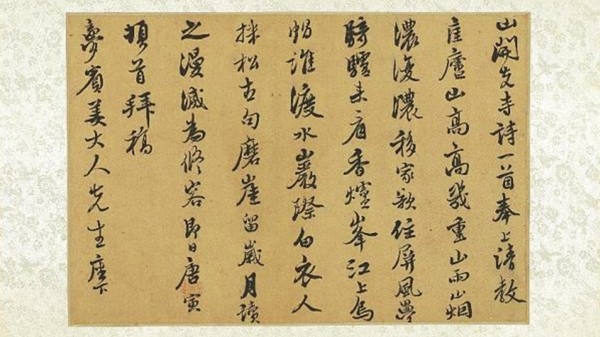 山開先寺詩一首奉上請教
匡廬山高高幾重山雨山烟
濃復濃移家欲住屏風疊
騎驢来看香爐峯江上烏
帽誰渡水巖際白衣人
採松古句磨崖留歲月讀
之漫滅為修容即日唐寅
頓首拜稿
夢賓美大人先生座下